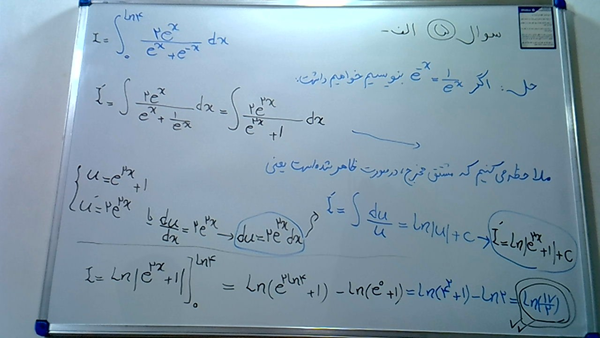 سوال ۵ الف-
I = ∫₀^{ln۴} ۲e^x / (e^x + e^{-x}) dx
حل: اگر e^{-x} = ۱/e^x بنویسیم خواهیم داشت:
I' = ∫ ۲e^x / (e^x + ۱/e^x) dx = ∫ ۲e^{۲x} / (e^{۲x} + ۱) dx
ملاحظه می کنیم که مشتق مخرج، در صورت ظاهر شده است یعنی
{ u = e^{۲x} + ۱
u' = ۲e^{۲x} یا du/dx = ۲e^{۲x} → du = ۲e^{۲x} dx } I' = ∫ du/u = ln|u| + c → I' = ln|e^{۲x} + ۱| + c
I = Ln|e^{۲x} + ۱| ]₀^{ln۴} = Ln(e^{۲ln۴} + ۱) - Ln(e^۰ + ۱) = Ln(۴^۲ + ۱) - Ln۲ = Ln(۱۷/۲)